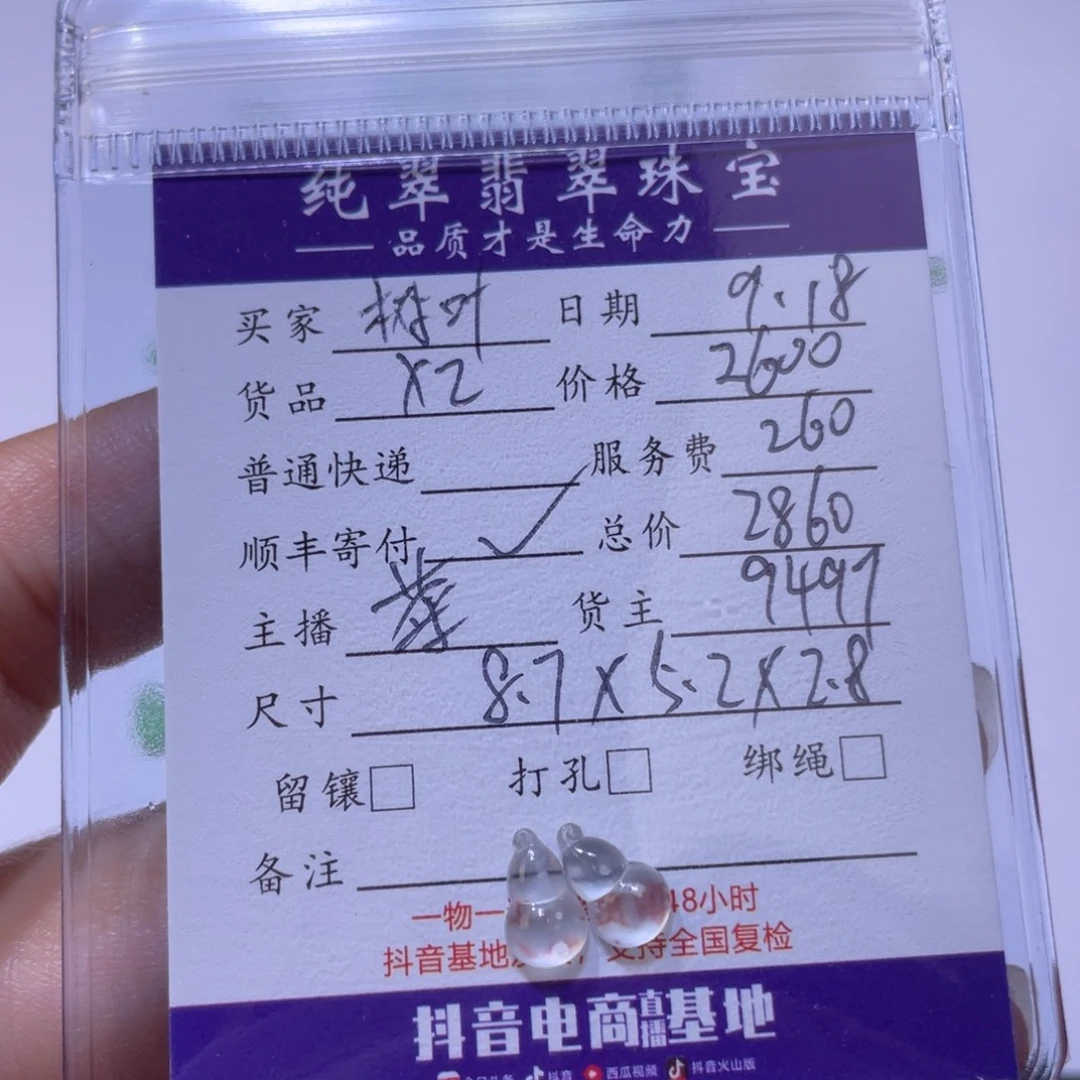 纯翠翡翠珠宝
品质才是生命力
买家 树叶 日期 9.18
货品 X2 价格 2600
普通快递 服务费 260
顺丰寄付 ✓ 总价 2860
主播 货主 9497
尺寸 8.7X5.2X2.8
留镶□ 打孔□ 绑绳□
备注
一物一 48小时
抖音基地 支持全国复检
抖音电商直播基地
今日头条 抖音 西瓜视频 抖音火山版